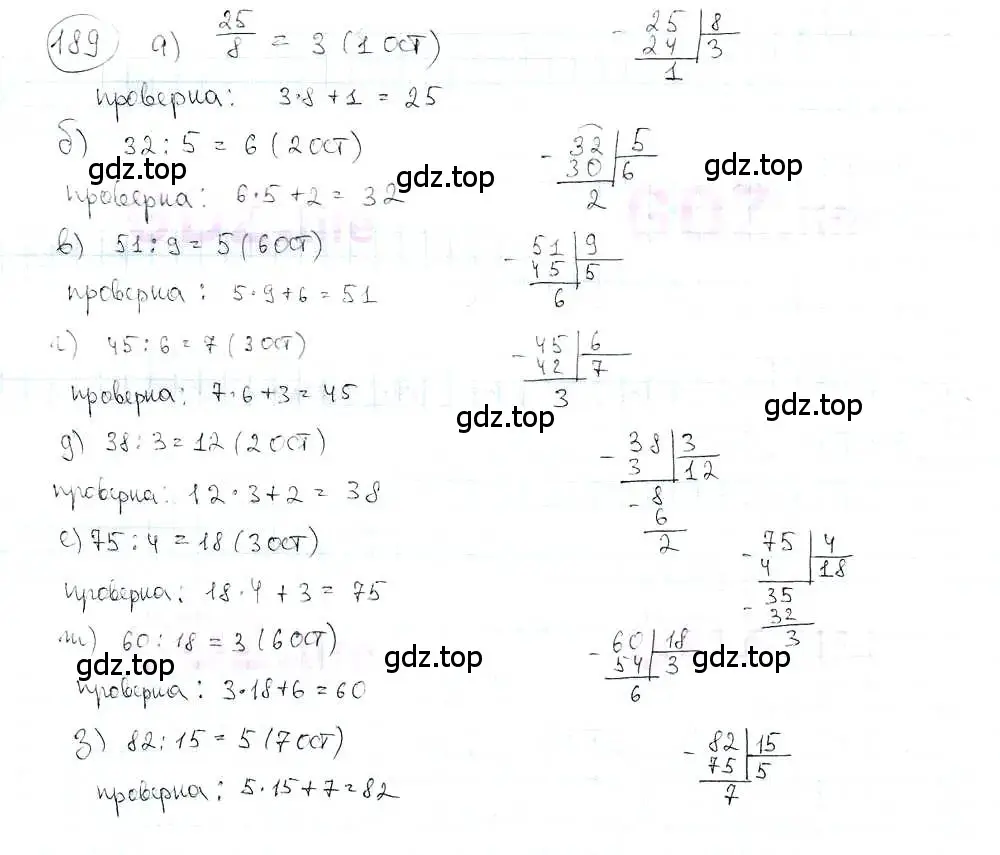 189 а) 25/8 = 3 (1 ост) - 25 | 8
24 3
1
проверка: 3·8+1 = 25
б) 32:5 = 6 (2 ост) - 32 | 5
30 6
2
gdz.top gdz.top gdz.top
проверка: 6·5+2 = 32
в) 51:9 = 5 (6 ост) - 51 | 9
45 5
6
проверка: 5·9+6 = 51
г) 45:6 = 7 (3 ост) - 45 | 6
42 7
3
проверка: 7·6+3 = 45
gdz.top gdz.top
д) 38:3 = 12 (2 ост) - 38 | 3
3 12
- 8
6
2
проверка: 12·3+2 = 38
е) 75:4 = 18 (3 ост) - 75 | 4
4 18
- 35
32
3
проверка: 18·4+3 = 75
ж) 60:18 = 3 (6 ост) - 60 | 18
54 3
6
gdz.top gdz.top gdz.top
проверка: 3·18+6 = 60
з) 82:15 = 5 (7 ост) - 82 | 15
75 5
7
проверка: 5·15+7 = 82